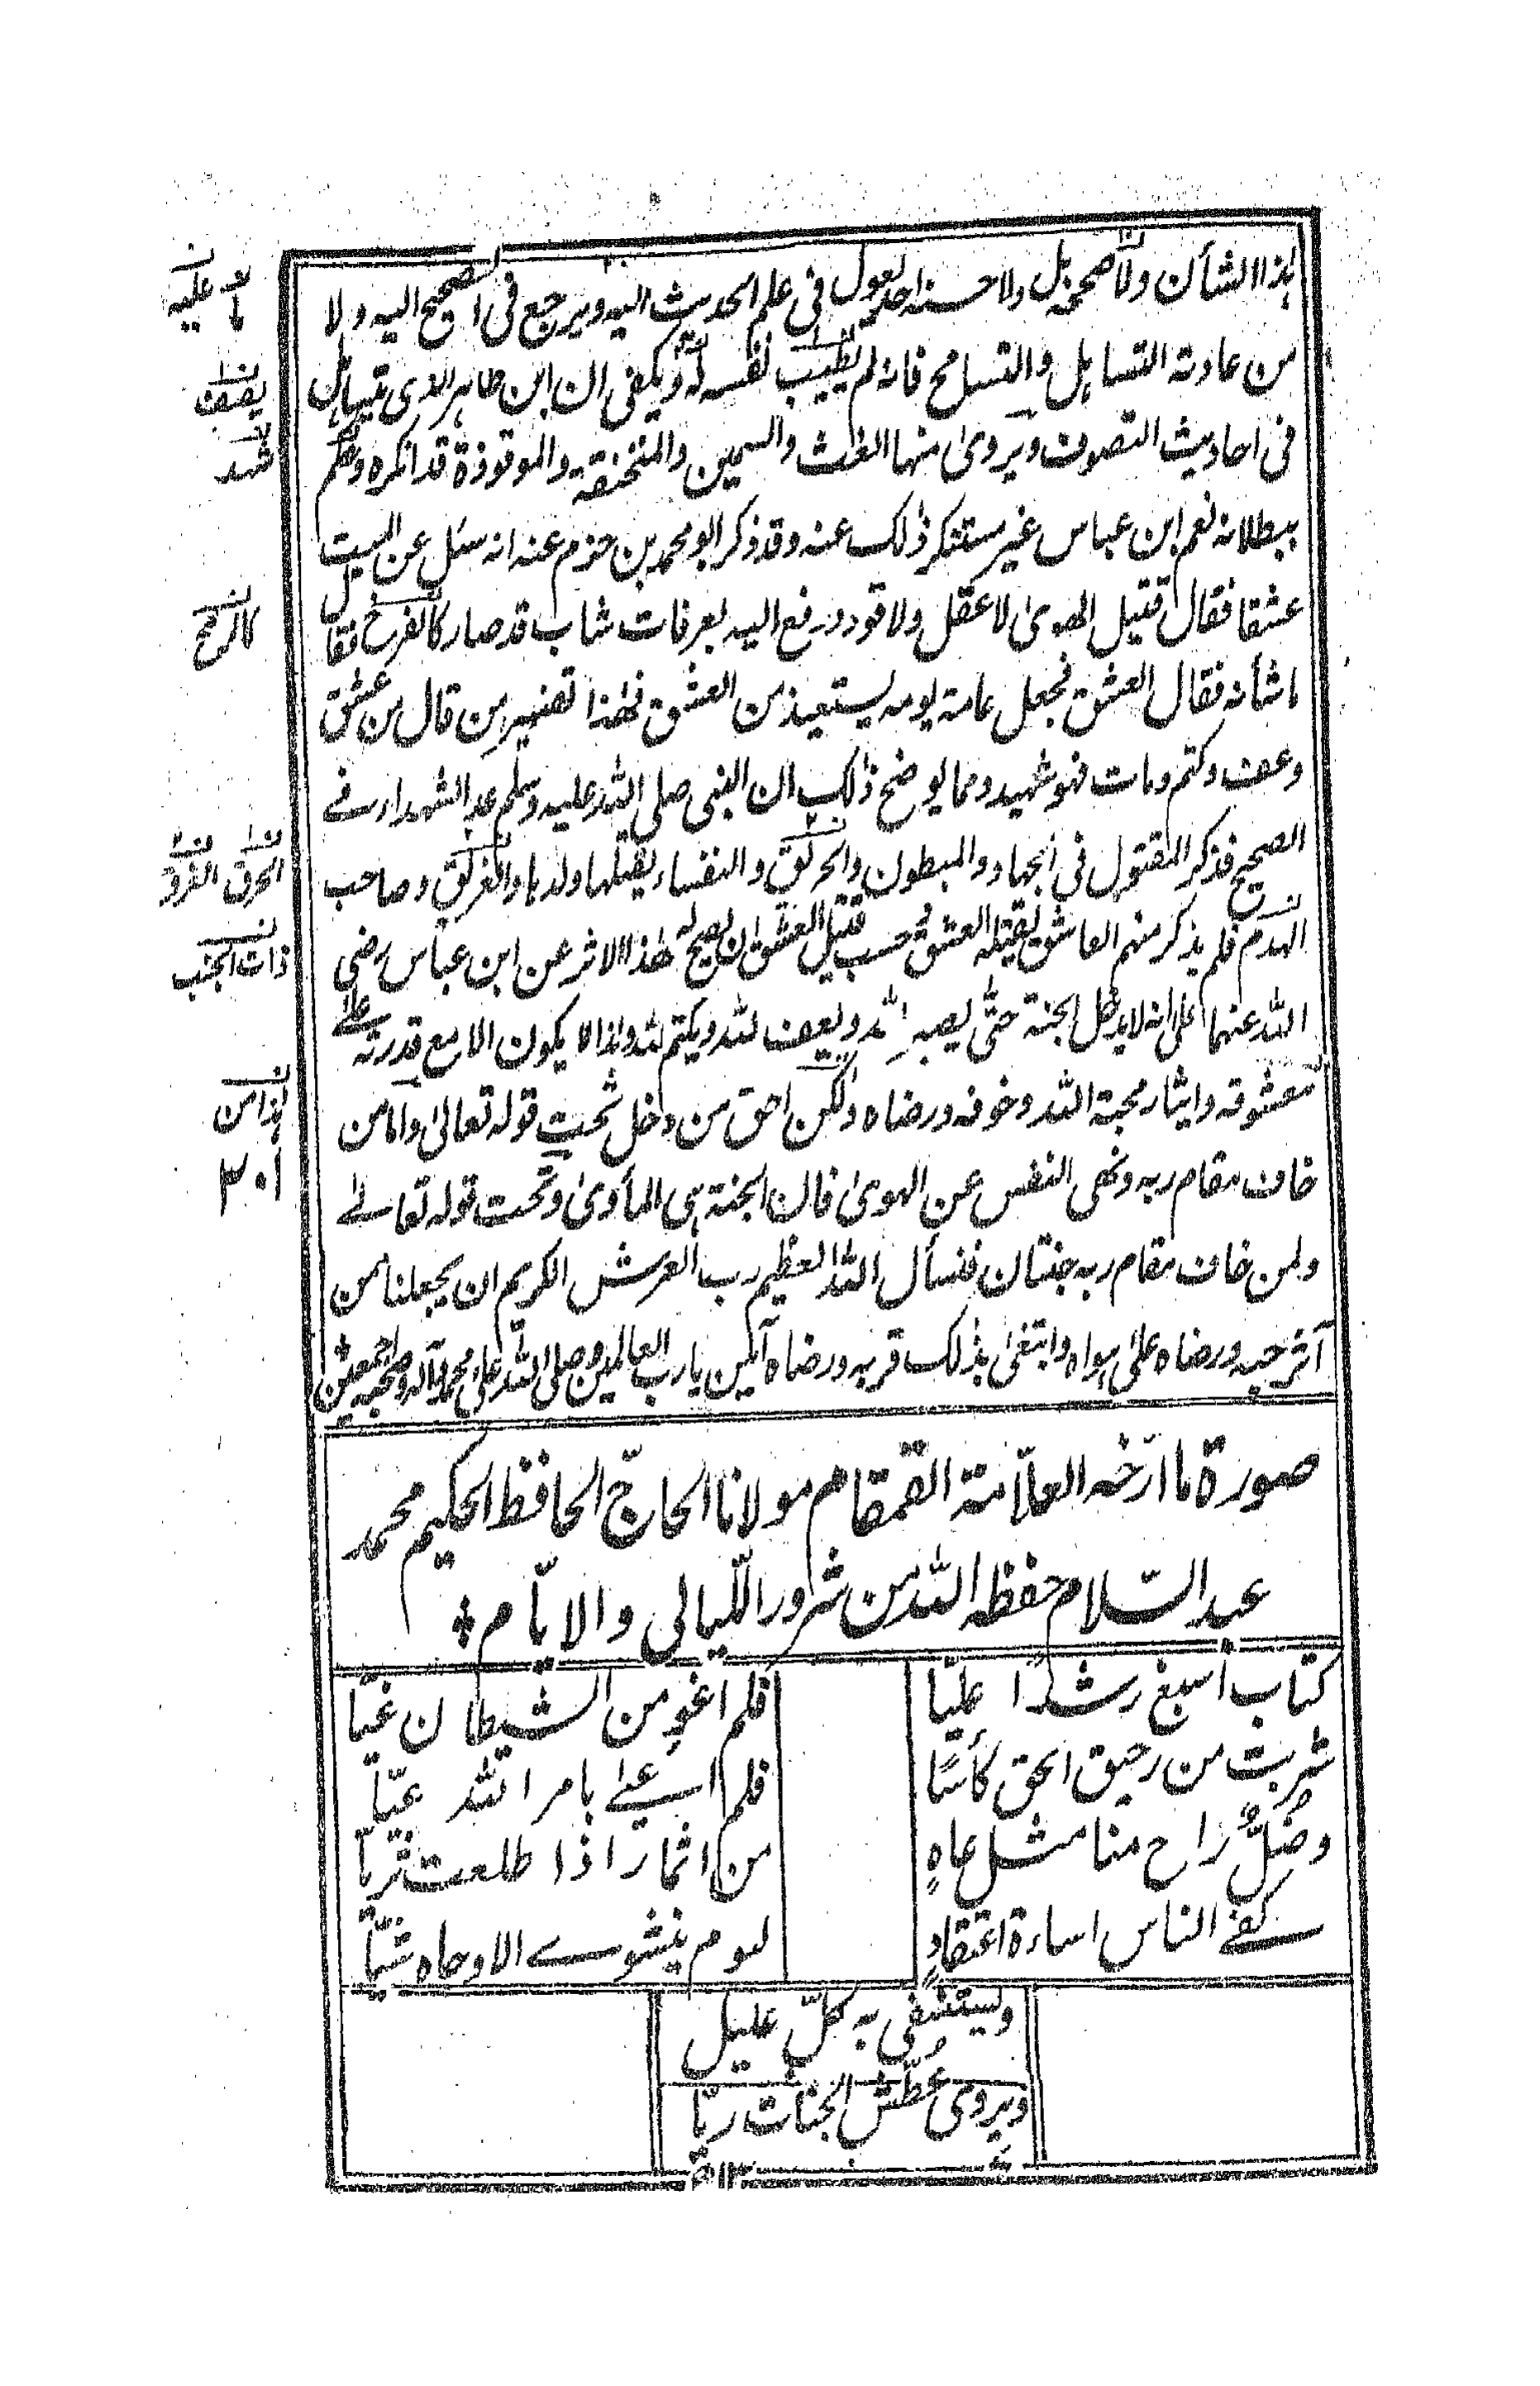 هذا الشأن ولا صححه بل ولا حسنه احد يعول فى علم الحديث اليه ويرجع فى الصحيح اليه ولا
من عادته التساهل والتسامح فانه لم يطيب نفسه له ويكفى ان ابن طاهر الذى يتساهل
فى احاديث التصوف ويروى منها الغث والسمين والمنخنقة والموقوذة قد انكره وحكم
ببطلانه نعم ابن عباس غير مستنكر ذلك عنه وقد ذكر ابو محمد بن حزم عنه انه سئل عن الميت
عشقا فقال قتيل الهوى لا عقل ولا قود ورفع اليه بعرفات شاب قد صار كالفرخ فقال
ما شأنه فقال العشق فجعل عامة يومه يستعيذ من العشق فهذا تفسير من قال من عشق
وعف وكتم ومات فهو شهيد ومما يوضح ذلك ان النبى صلى الله عليه وسلم عد الشهداء فے
الصحيح فذكر المقتول فى الجهاد والمبطون والحرق والنفساء يقتلها ولدها والغرق وصاحب
الهدم فلم يذكر منهم العاشق يقتله العشق وحسب قتيل العشق ان يصح له هذا الاثر عن ابن عباس رضى
الله عنهما على انه لا يدخل الجنة حتى يصبر لله ويعف لله ويكتم لله وهذا لا يكون الا مع قدرته علے
معشوقه وايثار محبة الله وخوفه ورضاه ولكن احق من دخل تحت قوله تعالى واما من
خاف مقام ربه ونهى النفس عن الهوى فان الجنة هى المأوى وتحت قوله تعالے
ولمن خاف مقام ربه جنتان فنسأل الله العظيم رب العرش الكريم ان يجعلنا من
آثر حبه ورضاه على هواه وابتغى بذلك قربه ورضاه آمين يا رب العالمين وصلى الله على محمد وآله وصحبه اجمعين
ما عليه
كالفرخ
الحرق الغرق
ذات الجنب
هذا من
صورة ما ارّخه العلّامة القمقام مولانا الحاجّ الحافظ الحكيم محمد
عبد السّلام حفظه الله من شرور اللّيالى والايّام
كتاب اسبغ رشدا عليّا فلم اغو من الشيطان غيّا
شربت من رحيق الحق كأسًا فلم اعے بامر الله عيّا
وضلّ راح منا مثل عاهٍ من اثمار اذا طلعت ثريّا
كفے الناس اساءة اعتقادٍ
ويستشفى به كلّ عليل
ويروى عطّش الجنات ريّا